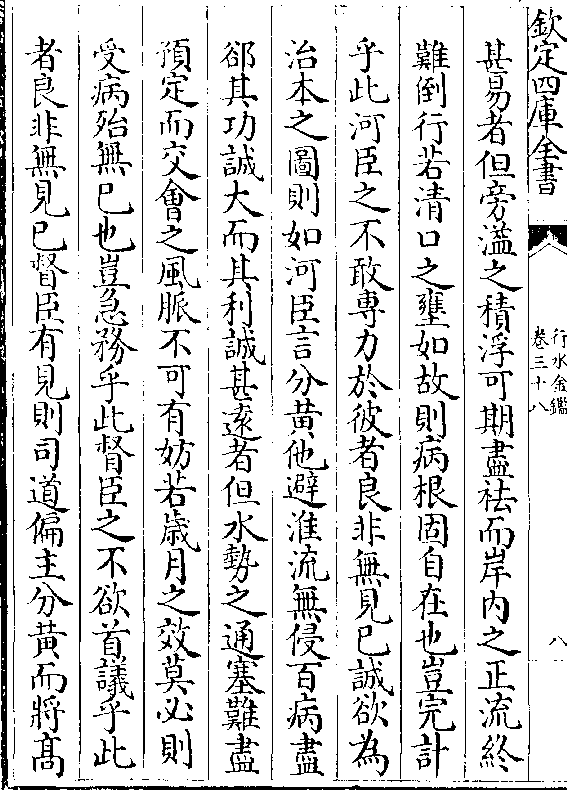 欽定四庫全書
行水金鑑
卷三十八
八
甚易者但旁溢之積浮可期盡祛而岸内之正流終
難倒行若清口之壅如故則病根固自在也豈完計
乎此河臣之不敢專力於彼者良非無見已誠欲為
治本之圖則如河臣言分黄他避淮流無侵百病盡
郤其功誠大而其利誠甚逺者但水勢之通塞難盡
預定而交會之風脈不可有妨若歳月之效莫必則
受病殆無已也豈急務乎此督臣之不欲首議乎此
者良非無見已督臣有見則司道偏主分黄而將髙